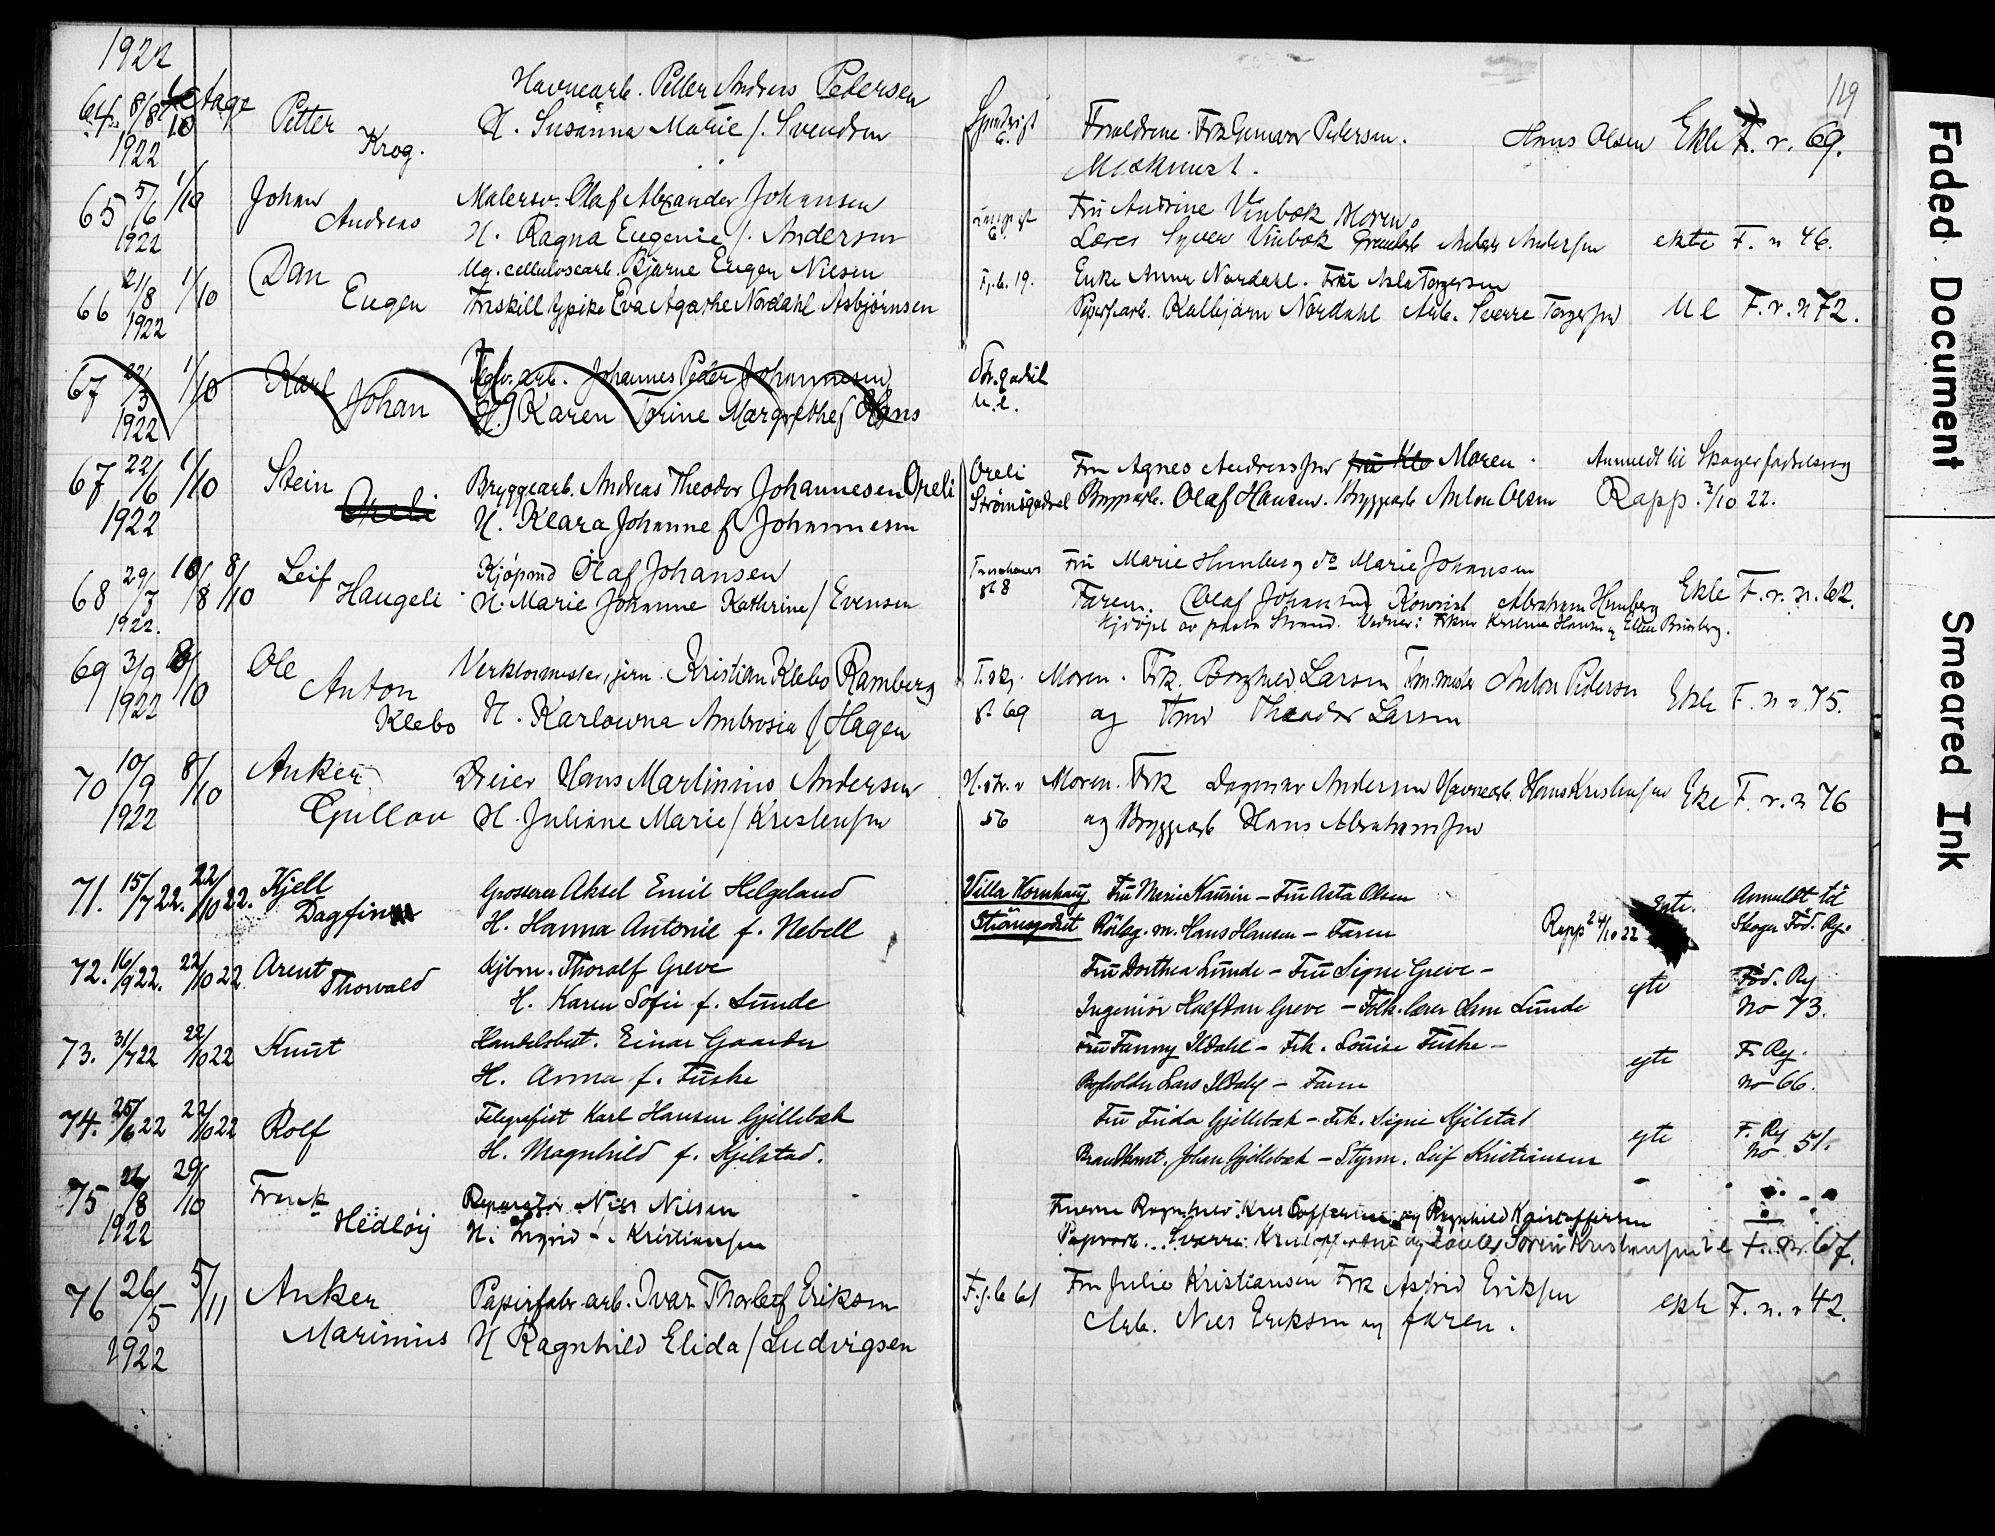 1922
119
64 8/8 1922 1/10 Petter Krog.
Havnearb. Petter Andreas Pedersen
H. Susanna Marie f. Svendsen
Foreldrene. Frk Gunvor Pedersen. Hans Olsen Ekte F. r. 69.
65 5/6 1922 1/10 Johan Andreas
Malersv. Olaf Alexander Johansen
H. Ragna Eugenie f. Andersen
Fru Andrine Vinbæk Moren.
Lærer Syver Vinbæk Anders Andersen ekte F. n 46.
66 21/8 1922 1/10 Dan Eugen
Ug. cellulosearb. Bjarne Eugen Nilsen
Fraskill typike Eva Agathe Nordahl Asbjørnsen
F.g. 19.
Enke Anna Nordahl. Frk Asla Torgersen
Papirarb. Kalbjørn Nordahl Arb. Sverre Torgersen U e F. r. n 72.
67 22/3 1922 1/10 Karl Johan
arb. Johannes Peder Johannesen
H. Karen Torine Margrethe f Hans
U. e.
67 22/6 1922 1/10 Stein Oreli
Bryggearb. Andreas Theodor Johannesen Oreli
H. Klara Johanne f Johannesen
Oreli Strømsgodset
Fru Agnes Andreassen fru Klo Moren. Anmeldt til Skoger fødselsreg
Bryggearb. Olaf Hansen. Bryggearb Anton Olsen Rapp. 2/10 22.
68 29/7 1922. 10/8 8/10 Leif Haugeli
Kjøpmd Olaf Johansen
H. Marie Johanne Kathrine f Evensen
Fru Marie Humberg do Marie Johansen
Faren. Olaf Johansen Abraham Humberg Ekte F. r. n. 62.
Hjdøpt av prosten Strand. Vidner: Frkne Kathrine Hansen og Ellen Brunberg.
69 3/9 1922 8/10 Ole Anton Klebo
Verktøimester, jern. Kristian Klebo Ramberg
H. Karlowna Ambrosia f Hagen
T.skg. gt. 69
Moren. Frk. Borghild Larsen Tm.mester Anton Pedersen Ekte F. n r. 75.
og Tmd Theodor Larsen
70 10/9 1922 8/10 Anker Gullov
Dreier Hans Martinius Andersen
H. Juliane Marie f Kristensen
H. str. v 56
Moren. Frk Dagmar Andersen Havnearb. Hans Kristensen Ekte F. r. n 76
og Bryggearb Hans Abrahamsen
71. 15/7 22. 22/10 22. Kjell Dagfinn
Grosserer Aksel Emil Helgeland
H. Hanna Antonie f. Nebell
Villa Kornhaug Strømsgodset
Fru Marie Kaurin - Fru Asta Olsen Egte. Anmeldt til
Rørlæg. m. Hans Hansen - Faren Rapp 24/10 22 Skoger Fød. Rg.
72. 16/9 22. 22/10 22 Arent Thorvald
Kjbm. Thoralf Greve
H. Karen Sofie f. Lunde
Fru Dorthea Lunde - Fru Signe Greve - egte Fød. Rg
Ingeniør Halfdan Greve - Folk. lærer Lunde No 73.
73. 31/7 22 22/10 22 Knut
Handelsbest. Einar Gaarder
H. Anna f. Fuske
Fru Fanny Ildahl - Frk. Louise Fuske - egte F. Rg.
Bogholder Lars Ildahl - Faren No 66.
74. 25/6 22 22/10 22 Rolf
Telegrafist Karl Hansen Gjellebæk
H. Magnhild f. Kjelstad.
Fru Frida Gjellebæk - Frk. Signe Kjelstad egte F. Rg
Brandkonst. Johan Gjellebæk - Styrm. Leif Kristiansen No 51.
75 26/8 1922 29/10 Frank Hedløy
Reparatør Niels Nilsen
H. Ingrid f. Kristiansen
Fruerne Ragnhild Kristoffersen og Ragnhild Kristoffersen
Papirarb. Sverre Kristoffersen og Søren Kristiansen
76 26/5 1922 5/11 Anker Marinius
Papirfabr arb. Ivar Thorleif Eriksen
H Ragnhild Elida f Ludvigsen
F.g. 6 61
Fru Julie Kristiansen Frk Astrid Eriksen ekte F. n. r 42.
Arb. Niels Eriksen og faren.
Faded Document
Smeared Ink